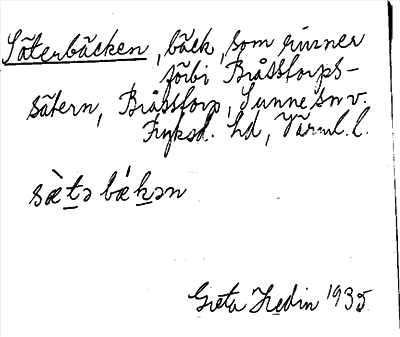 Säterbäcken, bäck, som rinner
förbi Bråtstorps-
sätern, Bråtstorp, Sunne sn v.
Fryksd. hd, Värml. l.
sæ̀tə bǽkən
Greta Hedin 1935